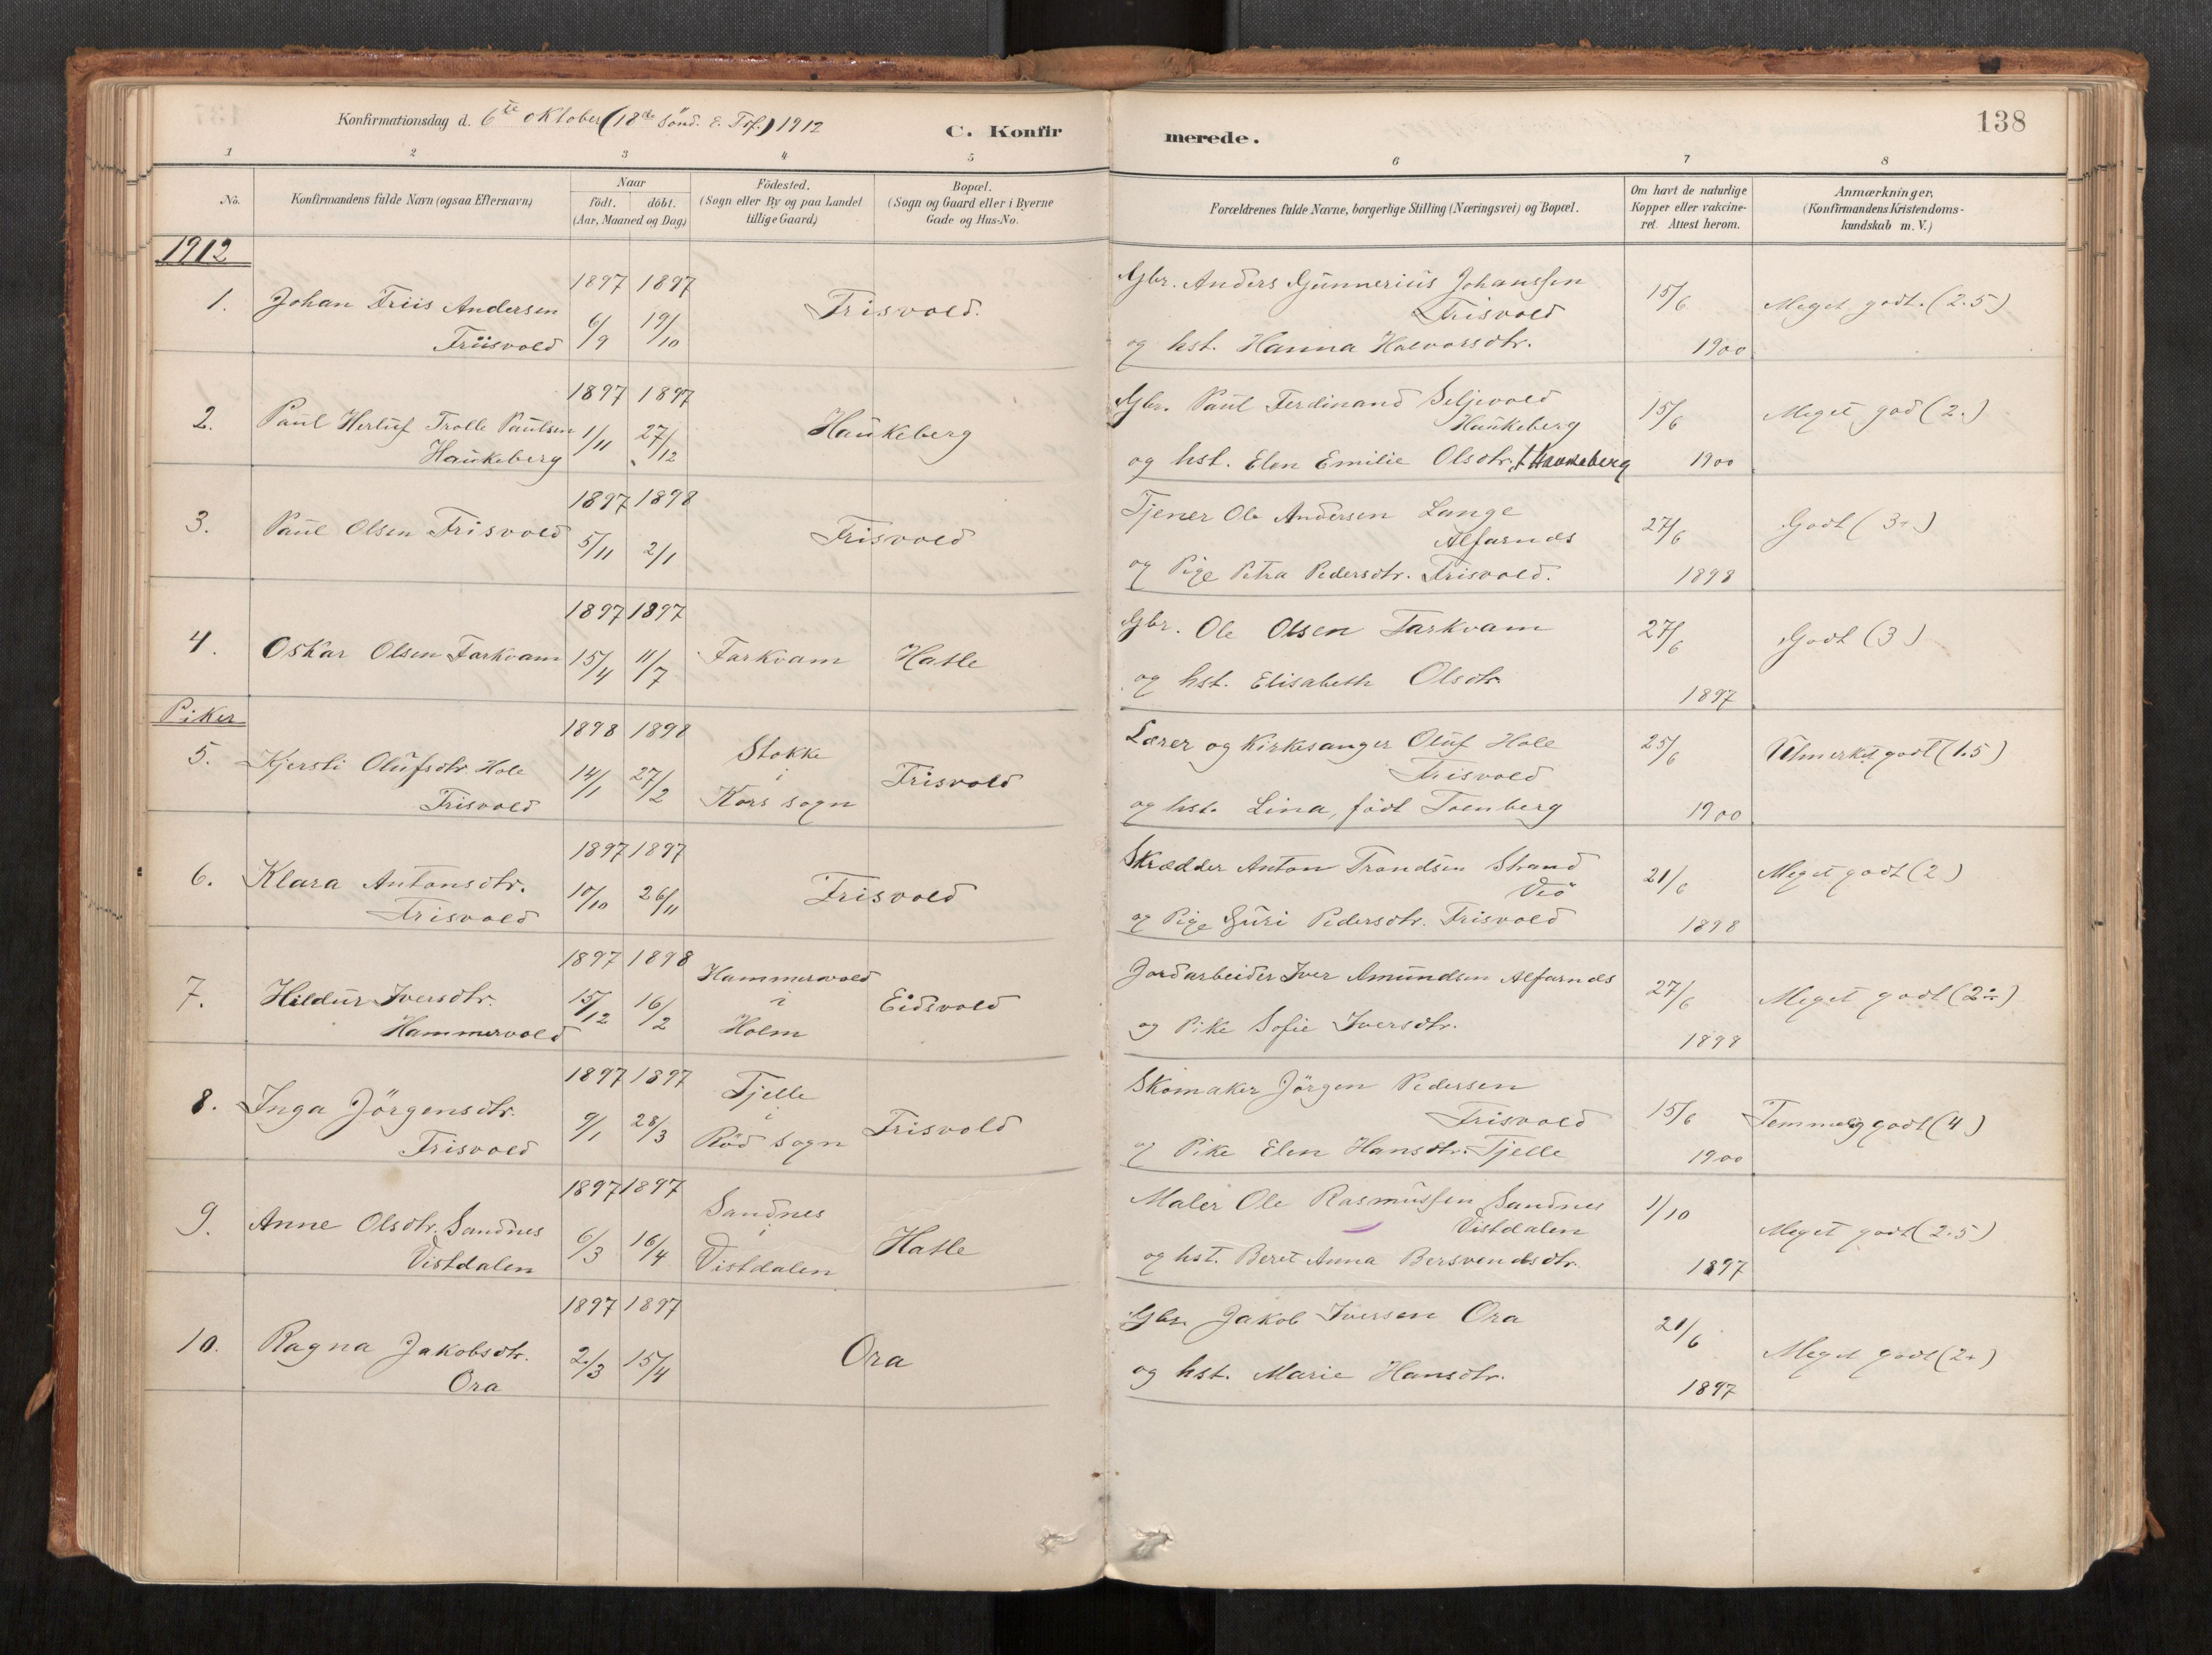 138
Konfirmationsdag d. 6te oktober (18de Sönd. e. Tref.) 1912
C. Konfirmerede.
1 2 3 4 5 6 7 8
No.
Konfirmandens fulde Navn (ogsaa Efternavn)
Naar
födt. döbt.
(Aar, Maaned og Dag)
Födested.
(Sogn eller By og paa Landet
tillige Gaard)
Bopæl.
(Sogn og Gaard eller i Byerne
Gade og Hus-No.
Forældrenes fulde Navne, borgerlige Stilling (Næringsvei) og Bopæl.
Om havt de naturlige
Kopper eller vakcine-
ret. Attest herom.
Anmærkninger,
(Konfirmandens Kristendoms-
kundskab m. V.)
1912
1. Johan Friis Andersen
Friisvold
1897 1897
6/9 19/10
Frisvold.
Gbr. Anders Gunnerius Johanssen
Frisvold
og hst. Hanna Halvorsdtr.
15/6
1900
Meget godt. (2.5)
2. Paul Herluf Trolle Paulsen
Haukeberg
1897 1897
1/11 27/12
Haukeberg
Gbr. Paul Ferdinand Seljevold
Haukeberg
og hst. Elen Emilie Olsdtr. Haukeberg
15/6
1900
Meget god (2.)
3. Paul Olsen Frisvold
1897 1898
5/11 2/1
Frisvold
Tjener Ole Andersen Lange
Alfarnes
og Pige Petra Pedersdtr. Frisvold.
27/6
1898
Godt (3÷)
4. Oskar Olsen Farkvam
1897 1897
15/4 11/7
Farkvam
Hatle
Gbr. Ole Olsen Farkvam
og hst. Elisabeth Olsdtr.
27/6
1897
Godt (3)
Piker
5. Kjersti Olufsdtr. Hole
Frisvold
1898 1898
14/1 27/2
Stokke
i
Kors sogn
Frisvold
Lærer og Kirkesanger Oluf Hole
Frisvold
og hst. Lina, födt Toenberg
25/6
1900
Utmerket godt (1.5)
6. Klara Antonsdtr.
Frisvold
1897 1897
10/10 26/11
Frisvold
Skrædder Anton Trondsen Strand
Veö
og Pige Guri Pedersdtr. Frisvold
21/6
1898
Meget godt (2)
7. Hildur Iversdtr.
Hammervold
1897 1898
15/12 16/2
Hammervold
i
Holm
Eidsvold
Jordarbeider Iver Amundsen Alfarnes
og Pike Sofie Iversdtr.
27/6
1898
Meget godt (2÷)
8. Inga Jörgensdtr.
Frisvold
1897 1897
9/1 28/3
Tjelle
i
Röd sogn
Frisvold
Skomaker Jörgen Pedersen
Frisvold
og Pike Elen Hansdtr. Tjelle
15/6
1900
Temmelig godt (4)
9. Anne Olsdtr. Sandnes
Vistdalen
1897 1897
6/3 16/4
Sandnes
i
Vistdalen
Hatle
Maler Ole Rasmussen Sandnes
Vistdalen
og hst. Beret Anna Bersvendsdtr.
1/10
1897
Meget godt (2.5)
10. Ragna Jakobsdtr.
Ora
1897 1897
2/3 15/4
Ora
Gbr. Jakob Iversen Ora
og hst. Marie Hansdtr.
21/6
1897
Meget godt (2÷)